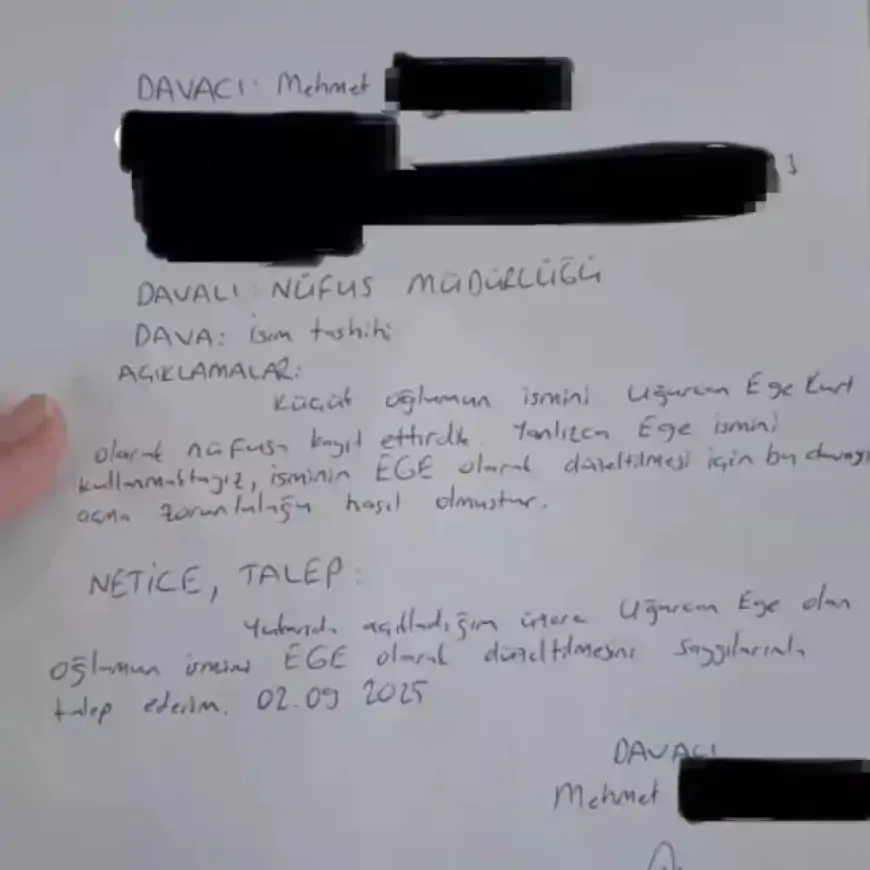 DAVACI: Mehmet
DAVALI: NÜFUS MÜDÜRLÜĞÜ
DAVA: isim tashihi
AÇIKLAMALAR:
Küçük oğlumun ismini Uğurcan Ege Kurt
olarak nüfusa kayıt ettirdik. Yanlızca Ege ismini
kullanmaktayız, isminin EGE olarak düzeltilmesi için bu davayı
açma zorunluluğu hasıl olmuştur.
NETİCE, TALEP:
Yukarıda açıkladığım üzere Uğurcan Ege olan
oğlumun ismini EGE olarak düzeltilmesini saygılarımla
talep ederim. 02.09 2025
DAVACI
Mehmet